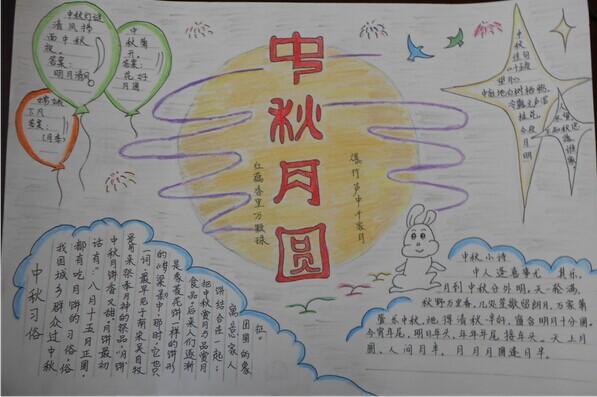 中秋月圆
中秋灯谜
清风拂
面中秋
夜。
答案：
明月清风
中
秋菊
开。
答案：
花好
月圆
嫦娥
下凡
答案：
（月季）
爆竹声中千家月
红藕香里万数珠
中
秋
诗句
十五夜
望月
中庭地白树栖鸦，
冷露无声湿
桂花。
今夜
月
明
中秋小诗
中人逢喜事尤其乐，
月到中秋分外明，天一轮满，
秋野万里香，几处笙歌留朗月，万家箫
管乐中秋，地得清秋一半好，窗含明月十分圆。
今宵年尾，明日年头，年年年尾接年头。天上月
圆，人间月半，月月月圆逢月半。
中秋习俗
我国城乡群众过中秋
都有吃月饼的习俗，俗
话有：“八月十五月正圆，
中秋月饼香又甜”。月饼最初
是用来祭奉月神的祭品，“月饼”
一词，最早见于南宋吴自牧
的《梦粱录》中，那时，它也只
是象菱花饼一样的饼形
食品，后来人们逐渐
把中秋赏月与品尝月
饼结合在一起，
寓意家人
团圆的象
征。